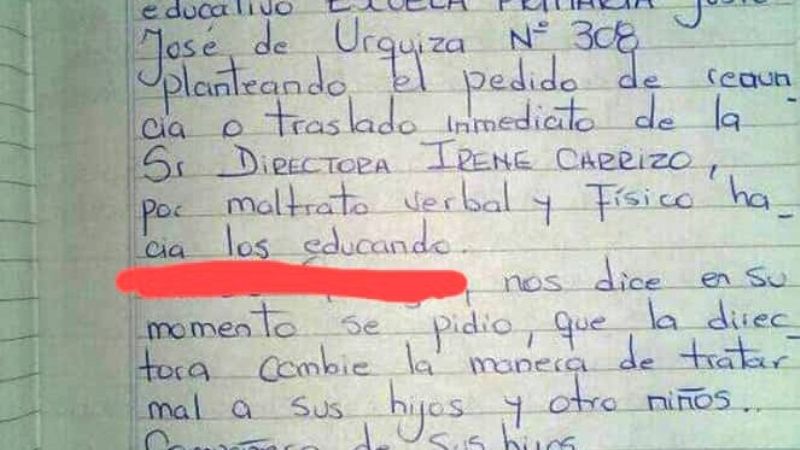 educativo ESCUELA PRIMARIA Justo
José de Urquiza Nº 308
planteando el pedido de renun
cia o traslado inmediato de la
Sr DIRECTORA IRENE CARRIZO,
por maltrato verbal y Físico ha_
cia los educando.
, nos dice en su
momento se pidio, que la direc_
tora cambie la manera de tratar
mal a sus hijos y otro niños..
de sus hijos